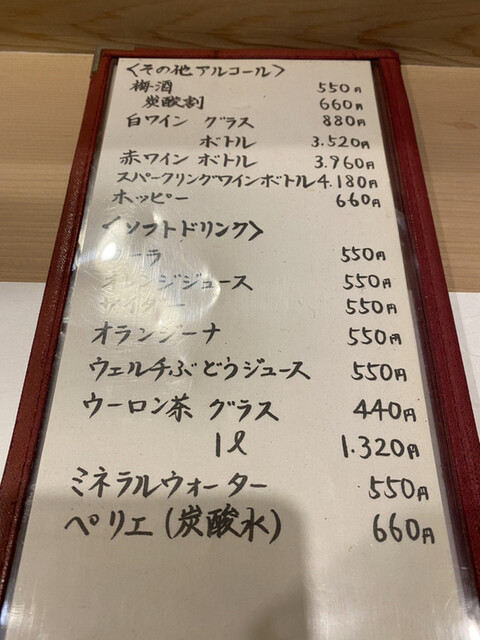 〈その他アルコール〉
梅酒 550円
炭酸割 660円
白ワイン グラス 880円
ボトル 3.520円
赤ワイン ボトル 3.960円
スパークリングワインボトル 4.180円
ホッピー 660円
〈ソフトドリンク〉
コーラ 550円
オレンジジュース 550円
サイダー 550円
オランジーナ 550円
ウェルチぶどうジュース 550円
ウーロン茶 グラス 440円
1ℓ 1.320円
ミネラルウォーター 550円
ペリエ(炭酸水) 660円